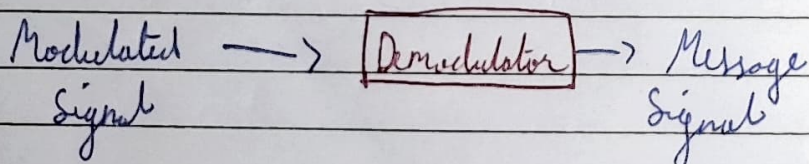 Modulated Signal → Demodulator → Message Signal